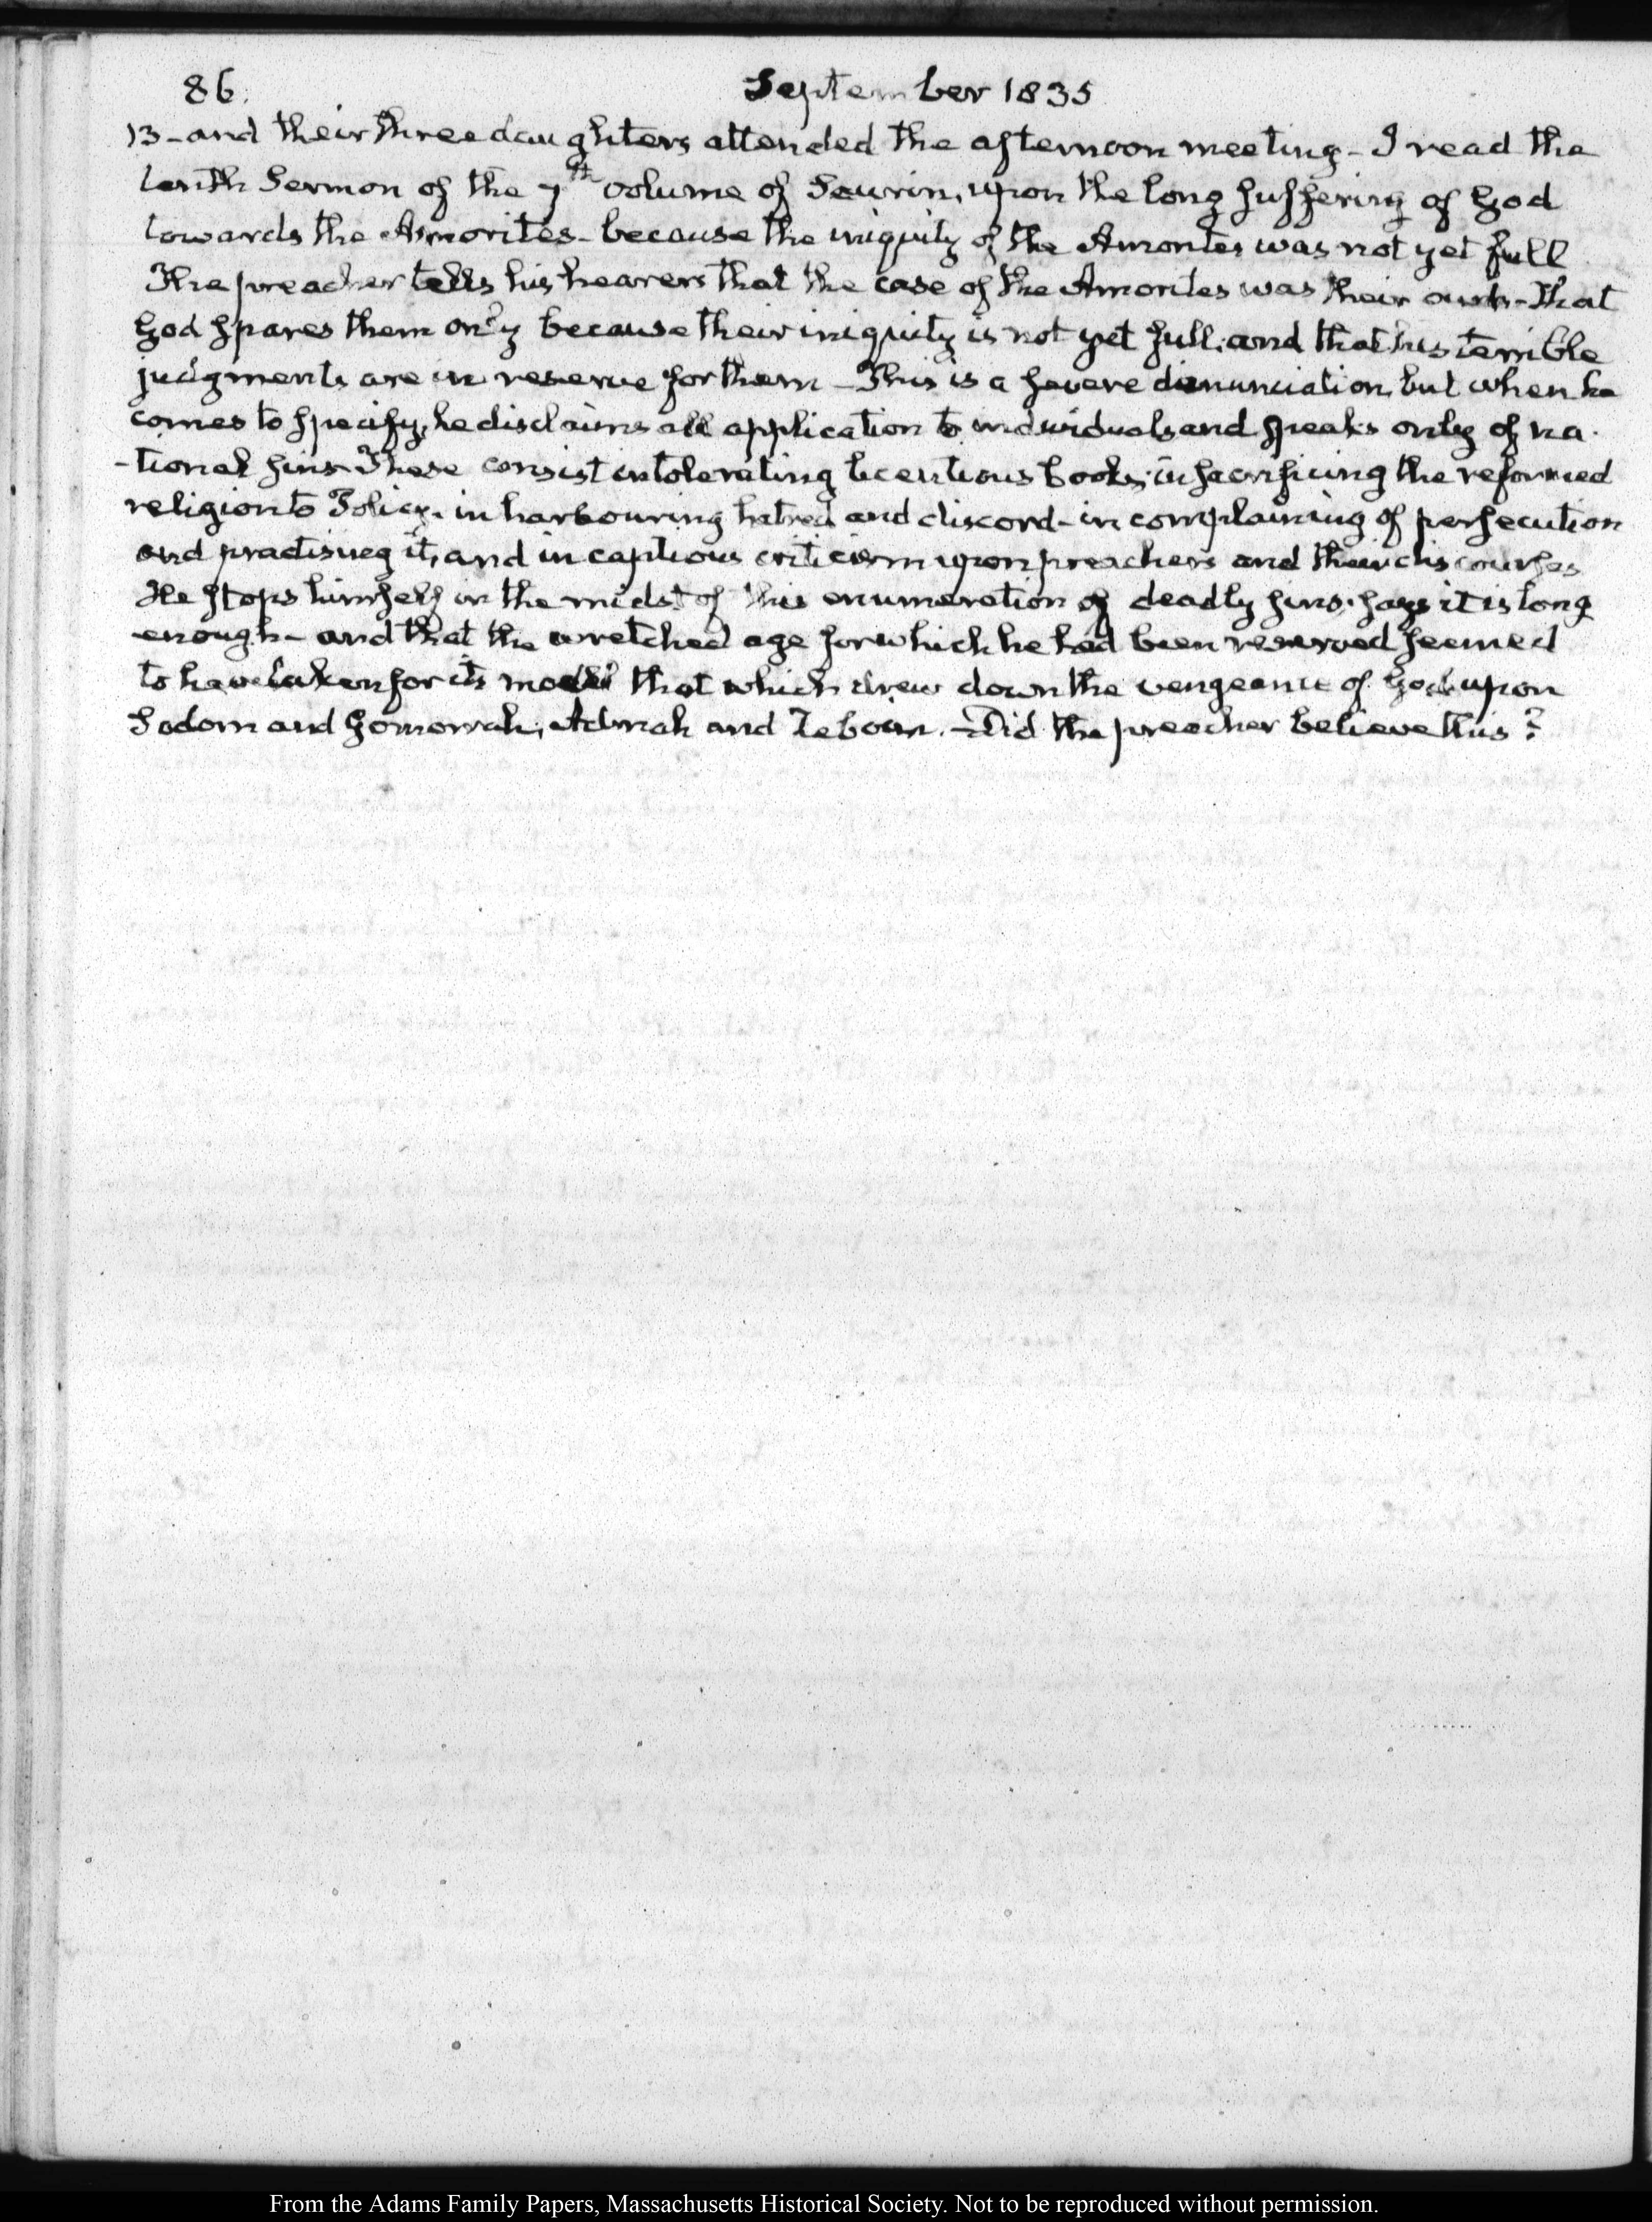 86.
September 1835
13 - and their three daughters attended the afternoon meeting - I read the
tenth Sermon of the 7th volume of Saurin, upon the long suffering of God
towards the Amorites - because the iniquity of the Amorites was not yet full
The preacher tells his hearers that the case of the Amorites was their own - That
God spares them only because their iniquity is not yet full, and that his terrible
judgments are in reserve for them - This is a severe denunciation, but when he
comes to specify, he disclaims all application to individuals and speaks only of na-
-tional sins - These consist in tolerating licentious books, in sacrificing the reformed
religion to Policy, in harbouring hatred and discord - in complaining of persecution
and practising it, and in captious criticism upon preachers and their discourses
He stops himself in the midst of this enumeration of deadly sins, says it is long
enough - and that the wretched age for which he had been reserved seemed
to have taken for its model that which drew down the vengeance of God upon
Sodom and Gomorrah, Admah and Zeboim. - Did the preacher believe this?
From the Adams Family Papers, Massachusetts Historical Society. Not to be reproduced without permission.